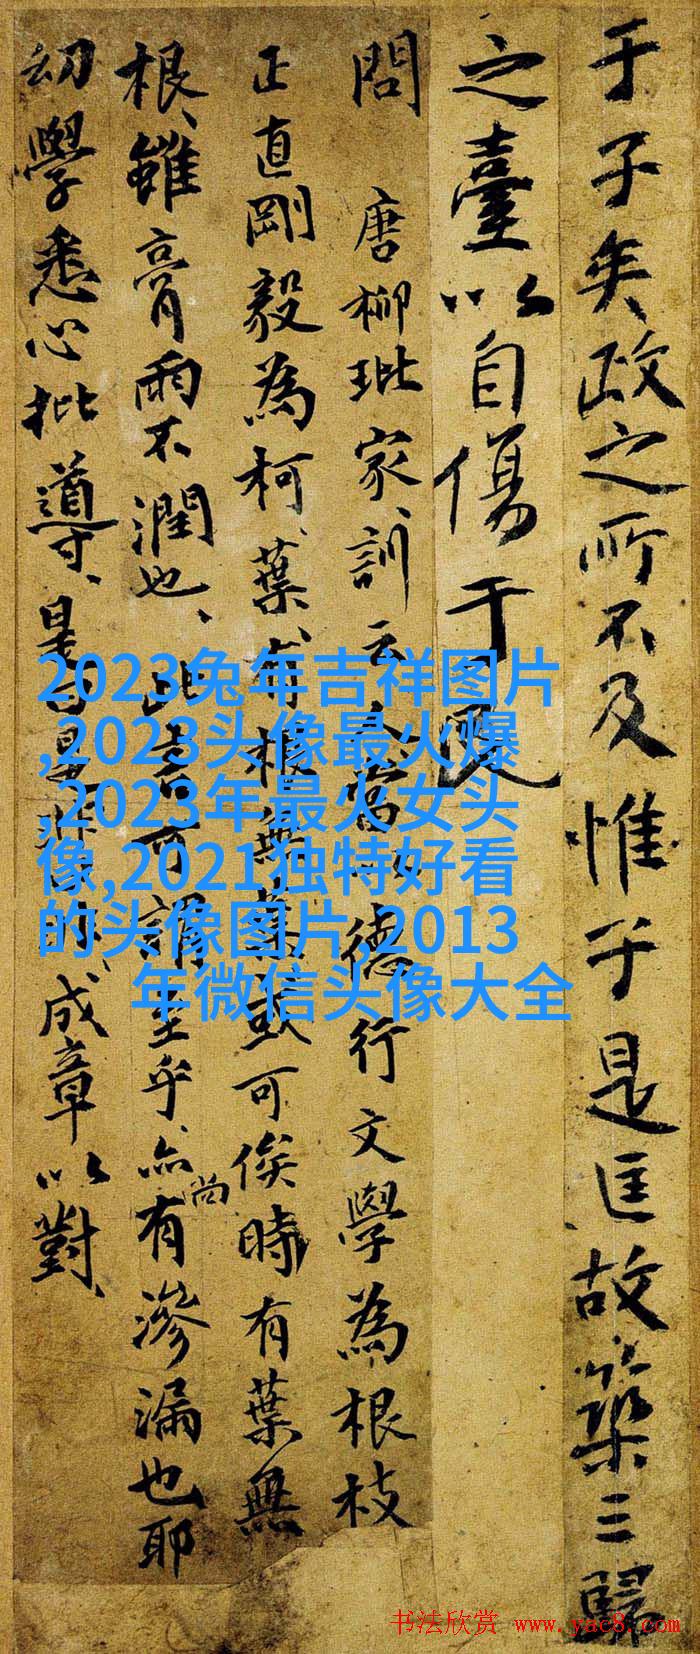 于子矣政之所不及惟于是匡故築三歸
之臺以自傷于民
問 唐柳玭家訓云夫當以德行文學為根枝
正直剛毅為柯葉有根無葉或可俟時有葉無
根雖膏雨不潤也此言可謂至乎亦尚有滲漏也耶
幼學悉心批導是曰是非曰非成章以對
2023兔年吉祥图片
,2023头像最火爆
,2023年最火女头
像,2021独特好看
的头像图片,2013
年微信头像大全
书法欣赏 www.yac8.com